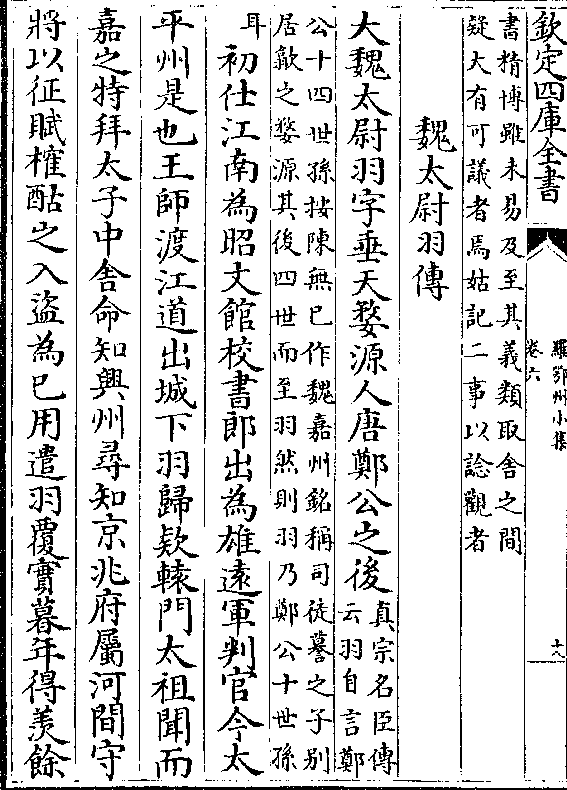 欽定四庫全書
羅鄂州小集
卷六
十八
書精博雖未易及至其義類取舍之間
疑大有可議者焉姑記二事以諗觀者
魏太尉羽傳
大魏太尉羽字垂天婺源人唐鄭公之後
真宗名臣傳
云羽自言鄭
公十四世孫按陳無已作魏嘉州銘稱司徒謩之子别
居歙之婺源其後四世而至羽然則羽乃鄭公十世孫
耳
初仕江南為昭文館校書郎出為雄遠軍判官今太
平州是也王師渡江道出城下羽歸欵轅門太祖聞而
嘉之特拜太子中舍命知興州尋知京兆府屬河間守
將以征賦榷酤之入盜為已用遣羽覆實暮年得羨餘